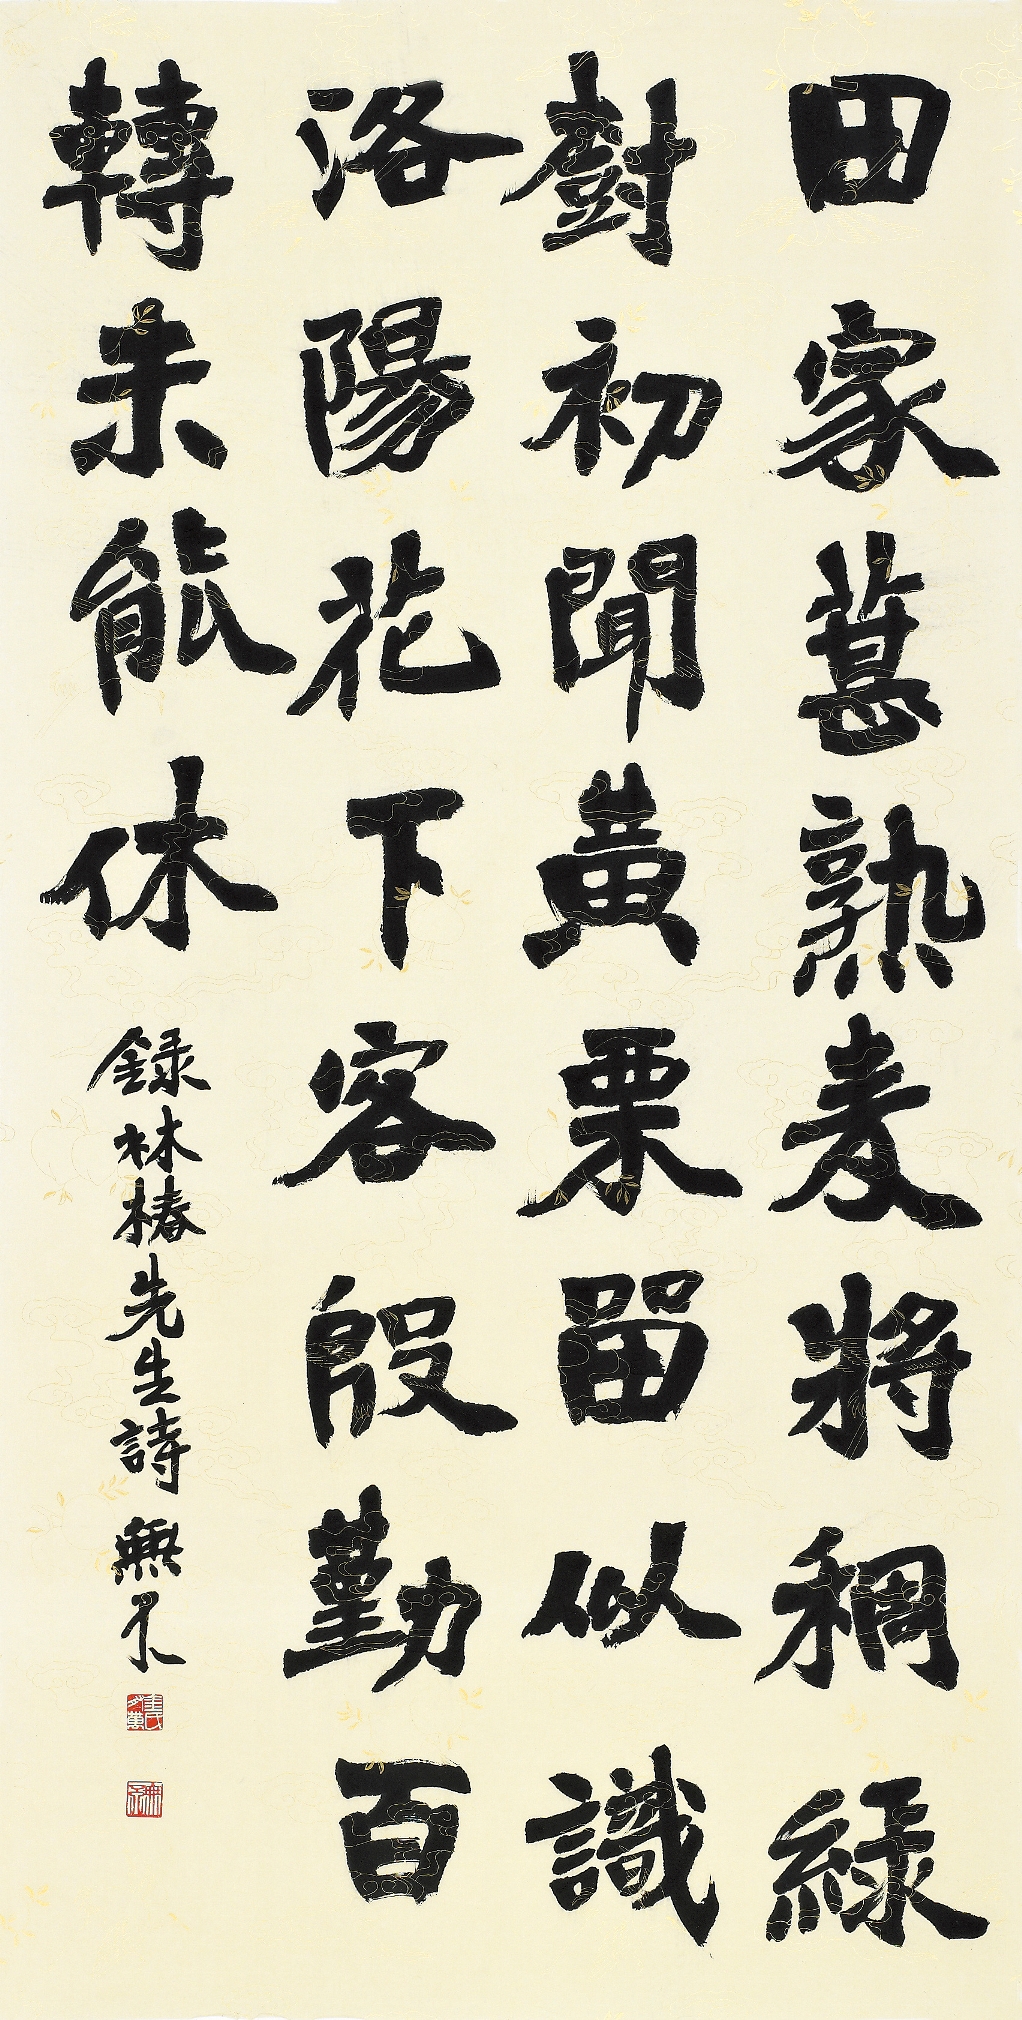 田家葚熟麥將稠綠
樹初聞黃栗留似識
洛陽花下客殷勤百
轉未能休
錄林椿先生詩 無